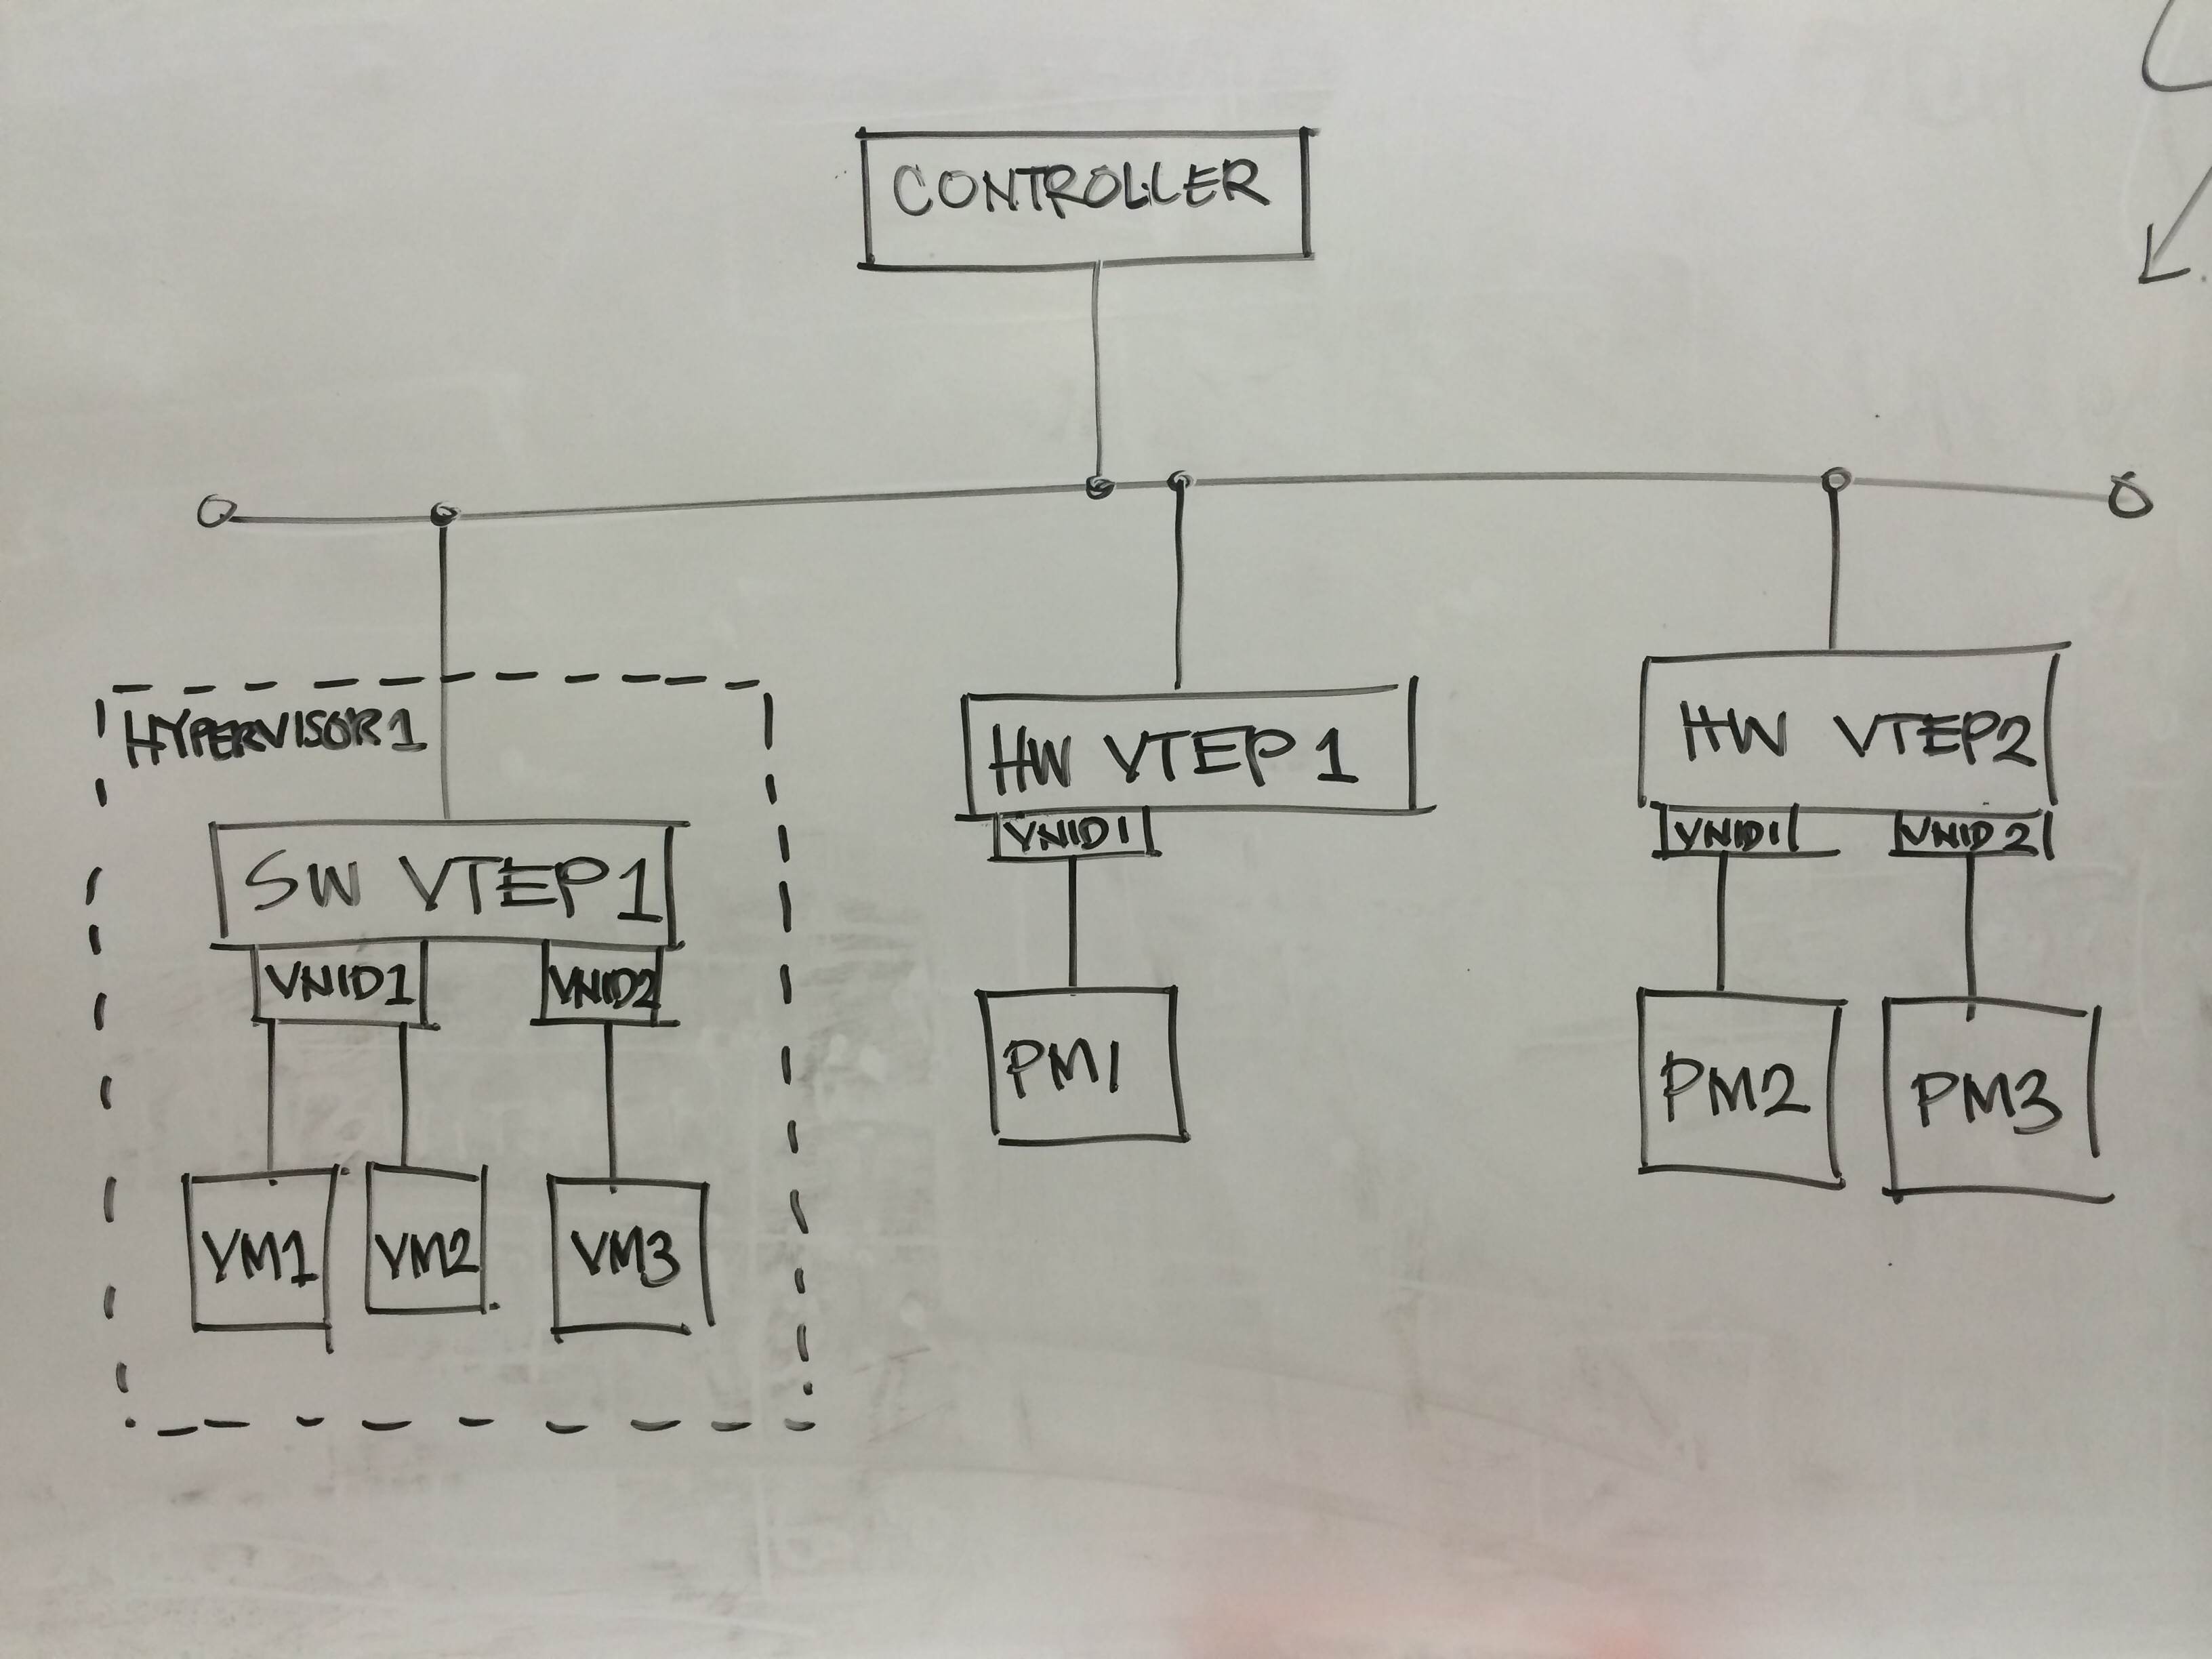 CONTROLLER
HYPERVISOR1
SW VTEP1
VNID1
VNID2
VM1
VM2
VM3
HW VTEP 1
VNID1
PM1
HW VTEP2
VNID1
VNID2
PM2
PM3